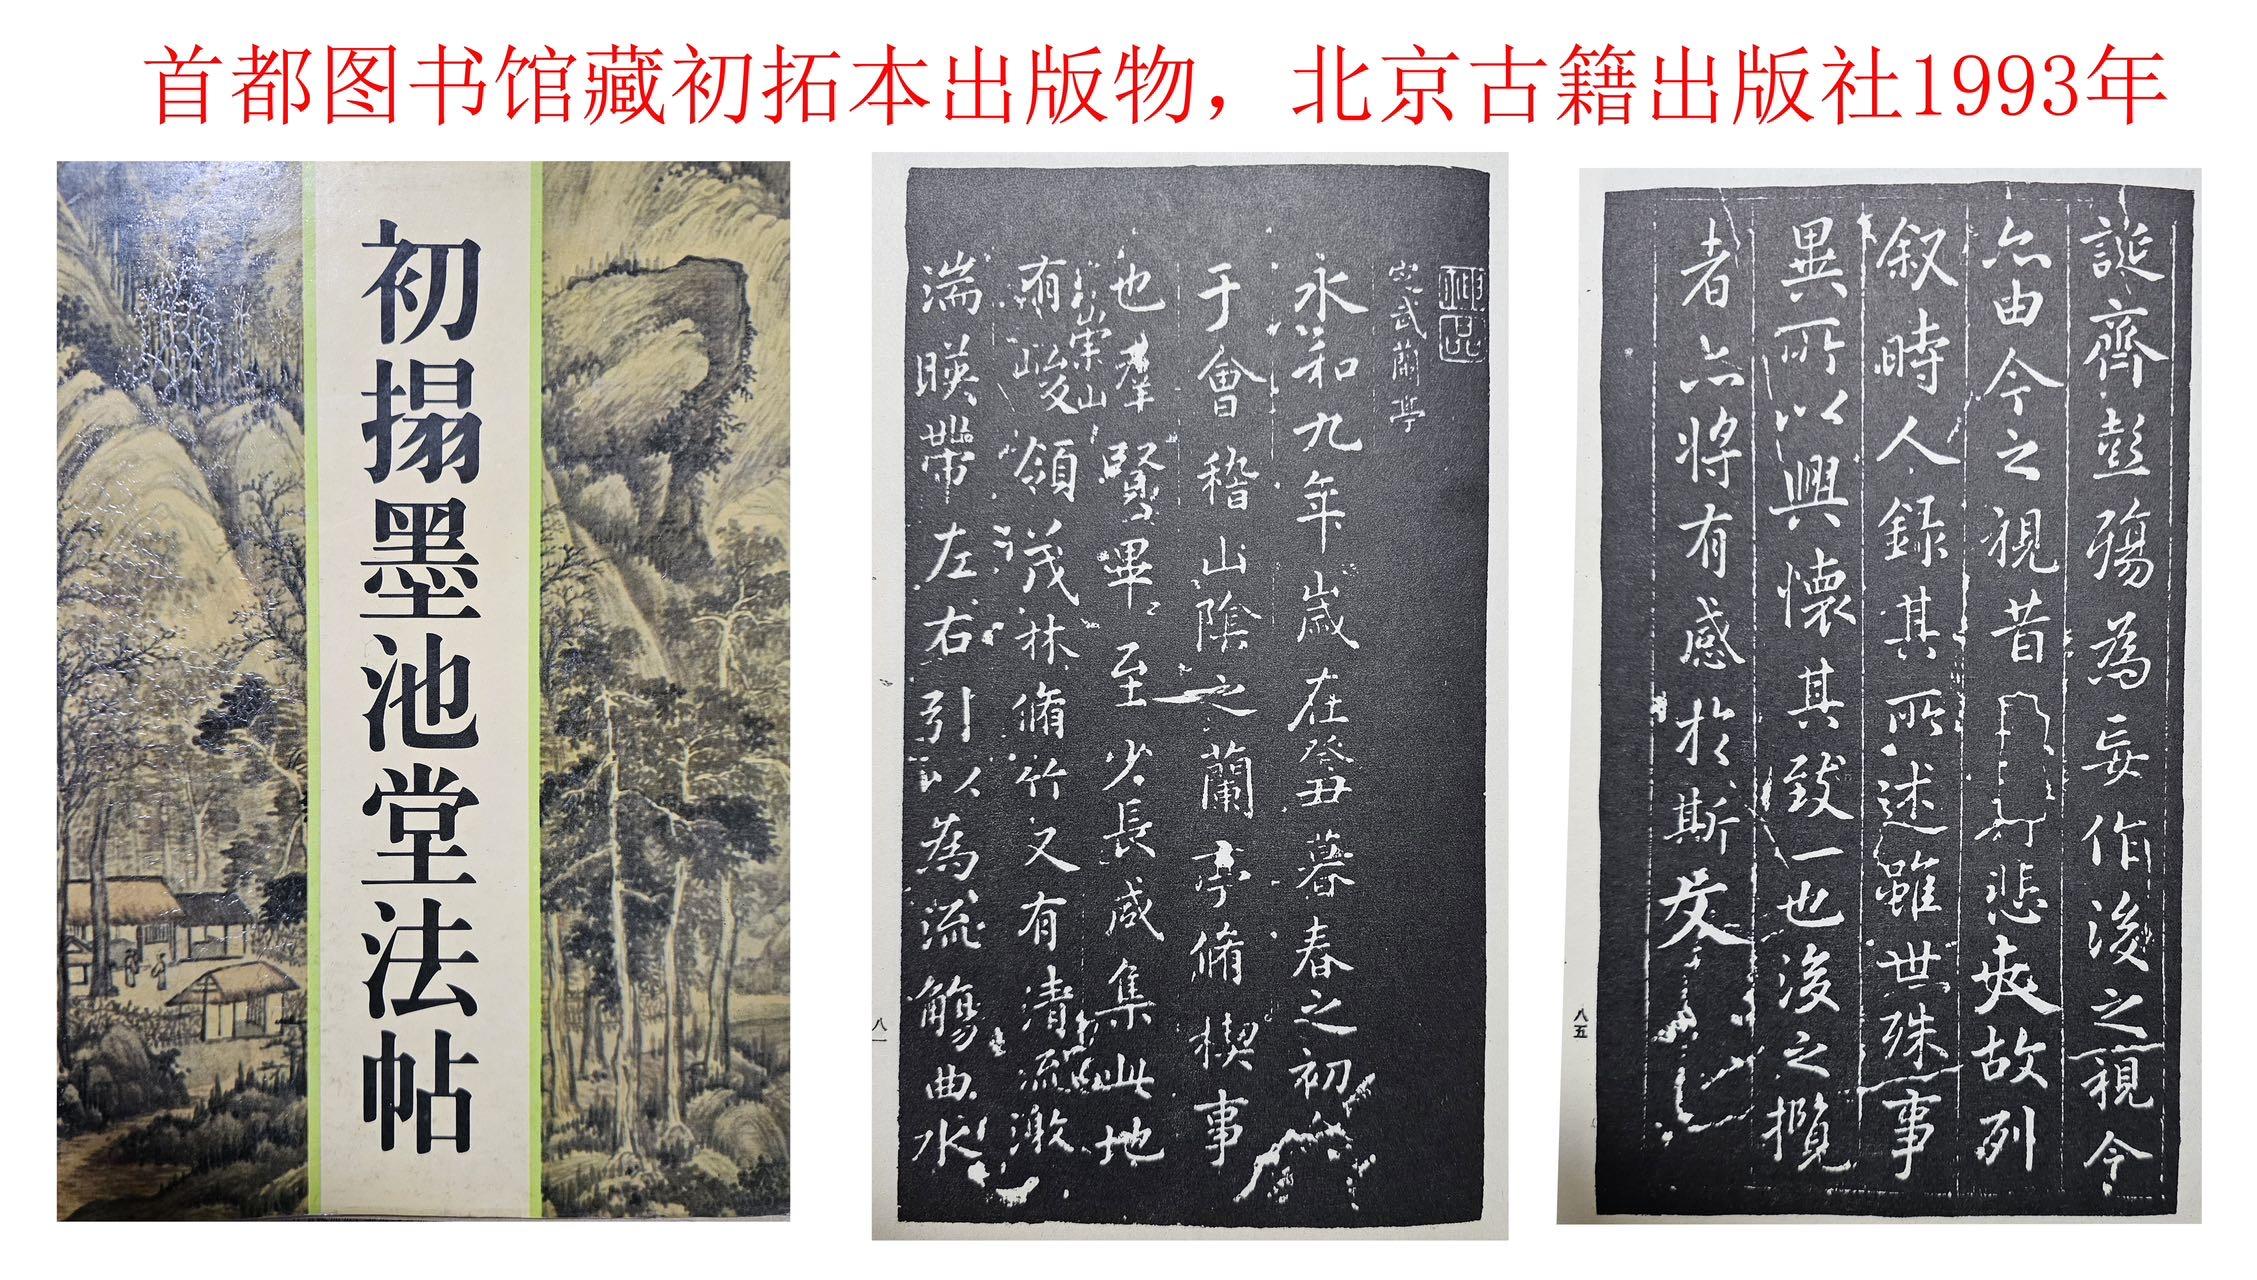 首都图书馆藏初拓本出版物，北京古籍出版社1993年
初搨墨池堂法帖
神品
定武蘭亭
永和九年歲在癸丑暮春之初會
于會稽山陰之蘭亭脩禊事
也群賢畢至少長咸集此地
有崇山峻領茂林脩竹又有清流激
湍暎帶左右引以為流觴曲水
八一
誕齊彭殤為妄作後之視今
亦由今之視昔悲夫故列
叙時人錄其所述雖世殊事
異所以興懷其致一也後之攬
者亦將有感於斯文
八五